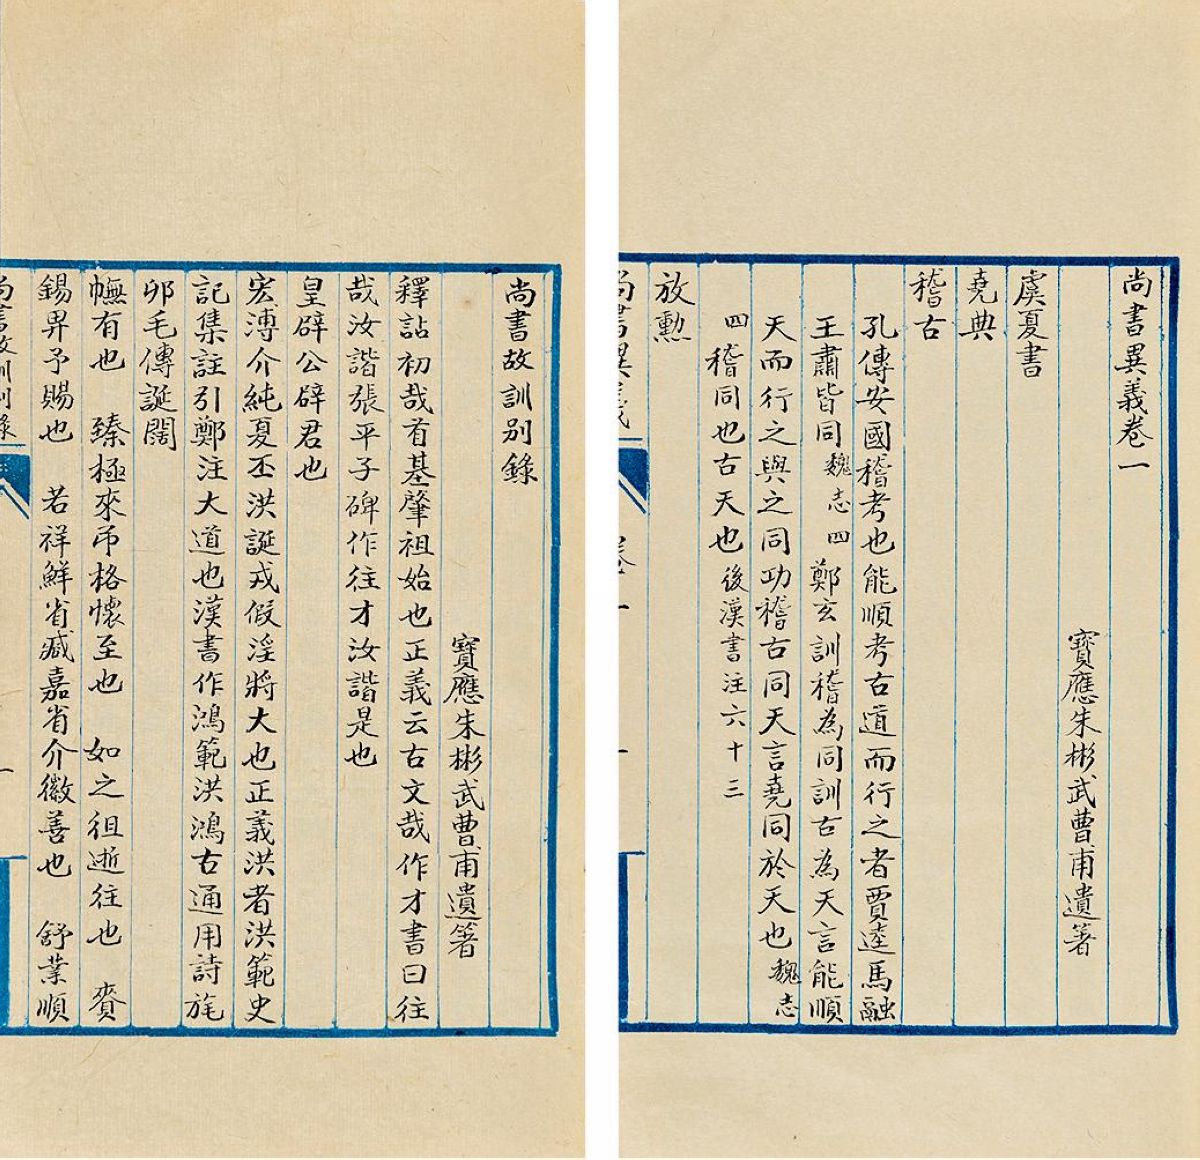 尚書異義卷一
寶應朱彬武曹甫遺箸
虞夏書
堯典
稽古
孔傳安國稽考也能順考古道而行之者賈逵馬融
王肅皆同魏志四鄭玄訓稽為同訓古為天言能順
天而行之與之同功稽古同天言堯同於天也魏志
四稽同也古天也後漢書注六十三
放勲
尚書異義
卷一
一
尚書故訓别錄
寶應朱彬武曹甫遺箸
釋詁初哉首基肇祖始也正義云古文哉作才書曰往
哉汝諧張平子碑作往才汝諧是也
皇辟公辟君也
宏溥介純夏丕洪誕戎假淫將大也正義洪者洪範史
記集註引鄭注大道也漢書作鴻範洪鴻古通用詩旄
卯毛傳誕闊
幠有也 臻極來弔格懷至也 如之徂逝往也 賚
錫畀予賜也 若祥鮮省臧嘉省介徽善也 舒業順
尚書故訓别錄
一